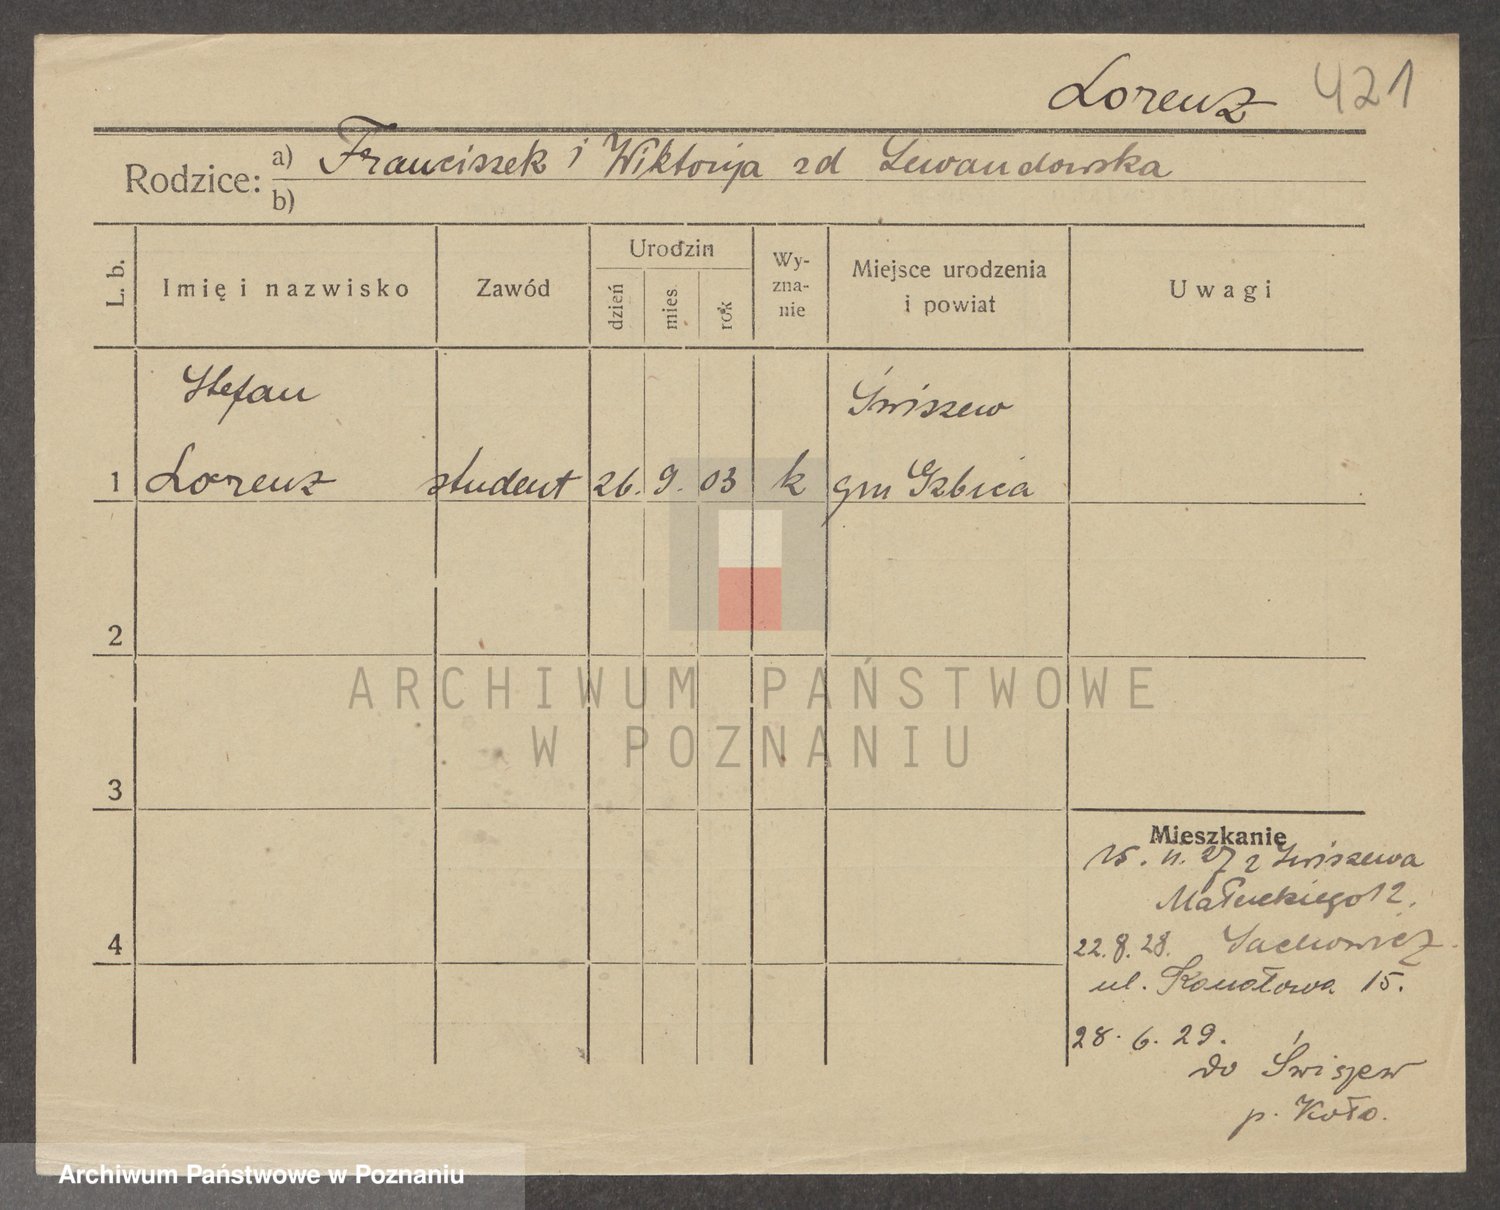 Lorenz 421
Rodzice: a) Franciszek i Wiktorija zd Lewandowska
b)
L. b.
Imię i nazwisko
Zawód
Urodzin
dzień
mies
rok
Wy-
zna-
nie
Miejsce urodzenia
i powiat
Uwagi
Stefan
Świszew
1 Lorenz student 26. 9. 03 k gm Izbica
2
ARCHIWUM PAŃSTWOWE
W POZNANIU
3
Mieszkanie
15. 11. 27 z Świszewa
Małeckiego 12.
4
22. 8. 28.
ul. Kanałowa 15.
28. 6. 29.
do Świszew
p. Koło.
Archiwum Państwowe w Poznaniu